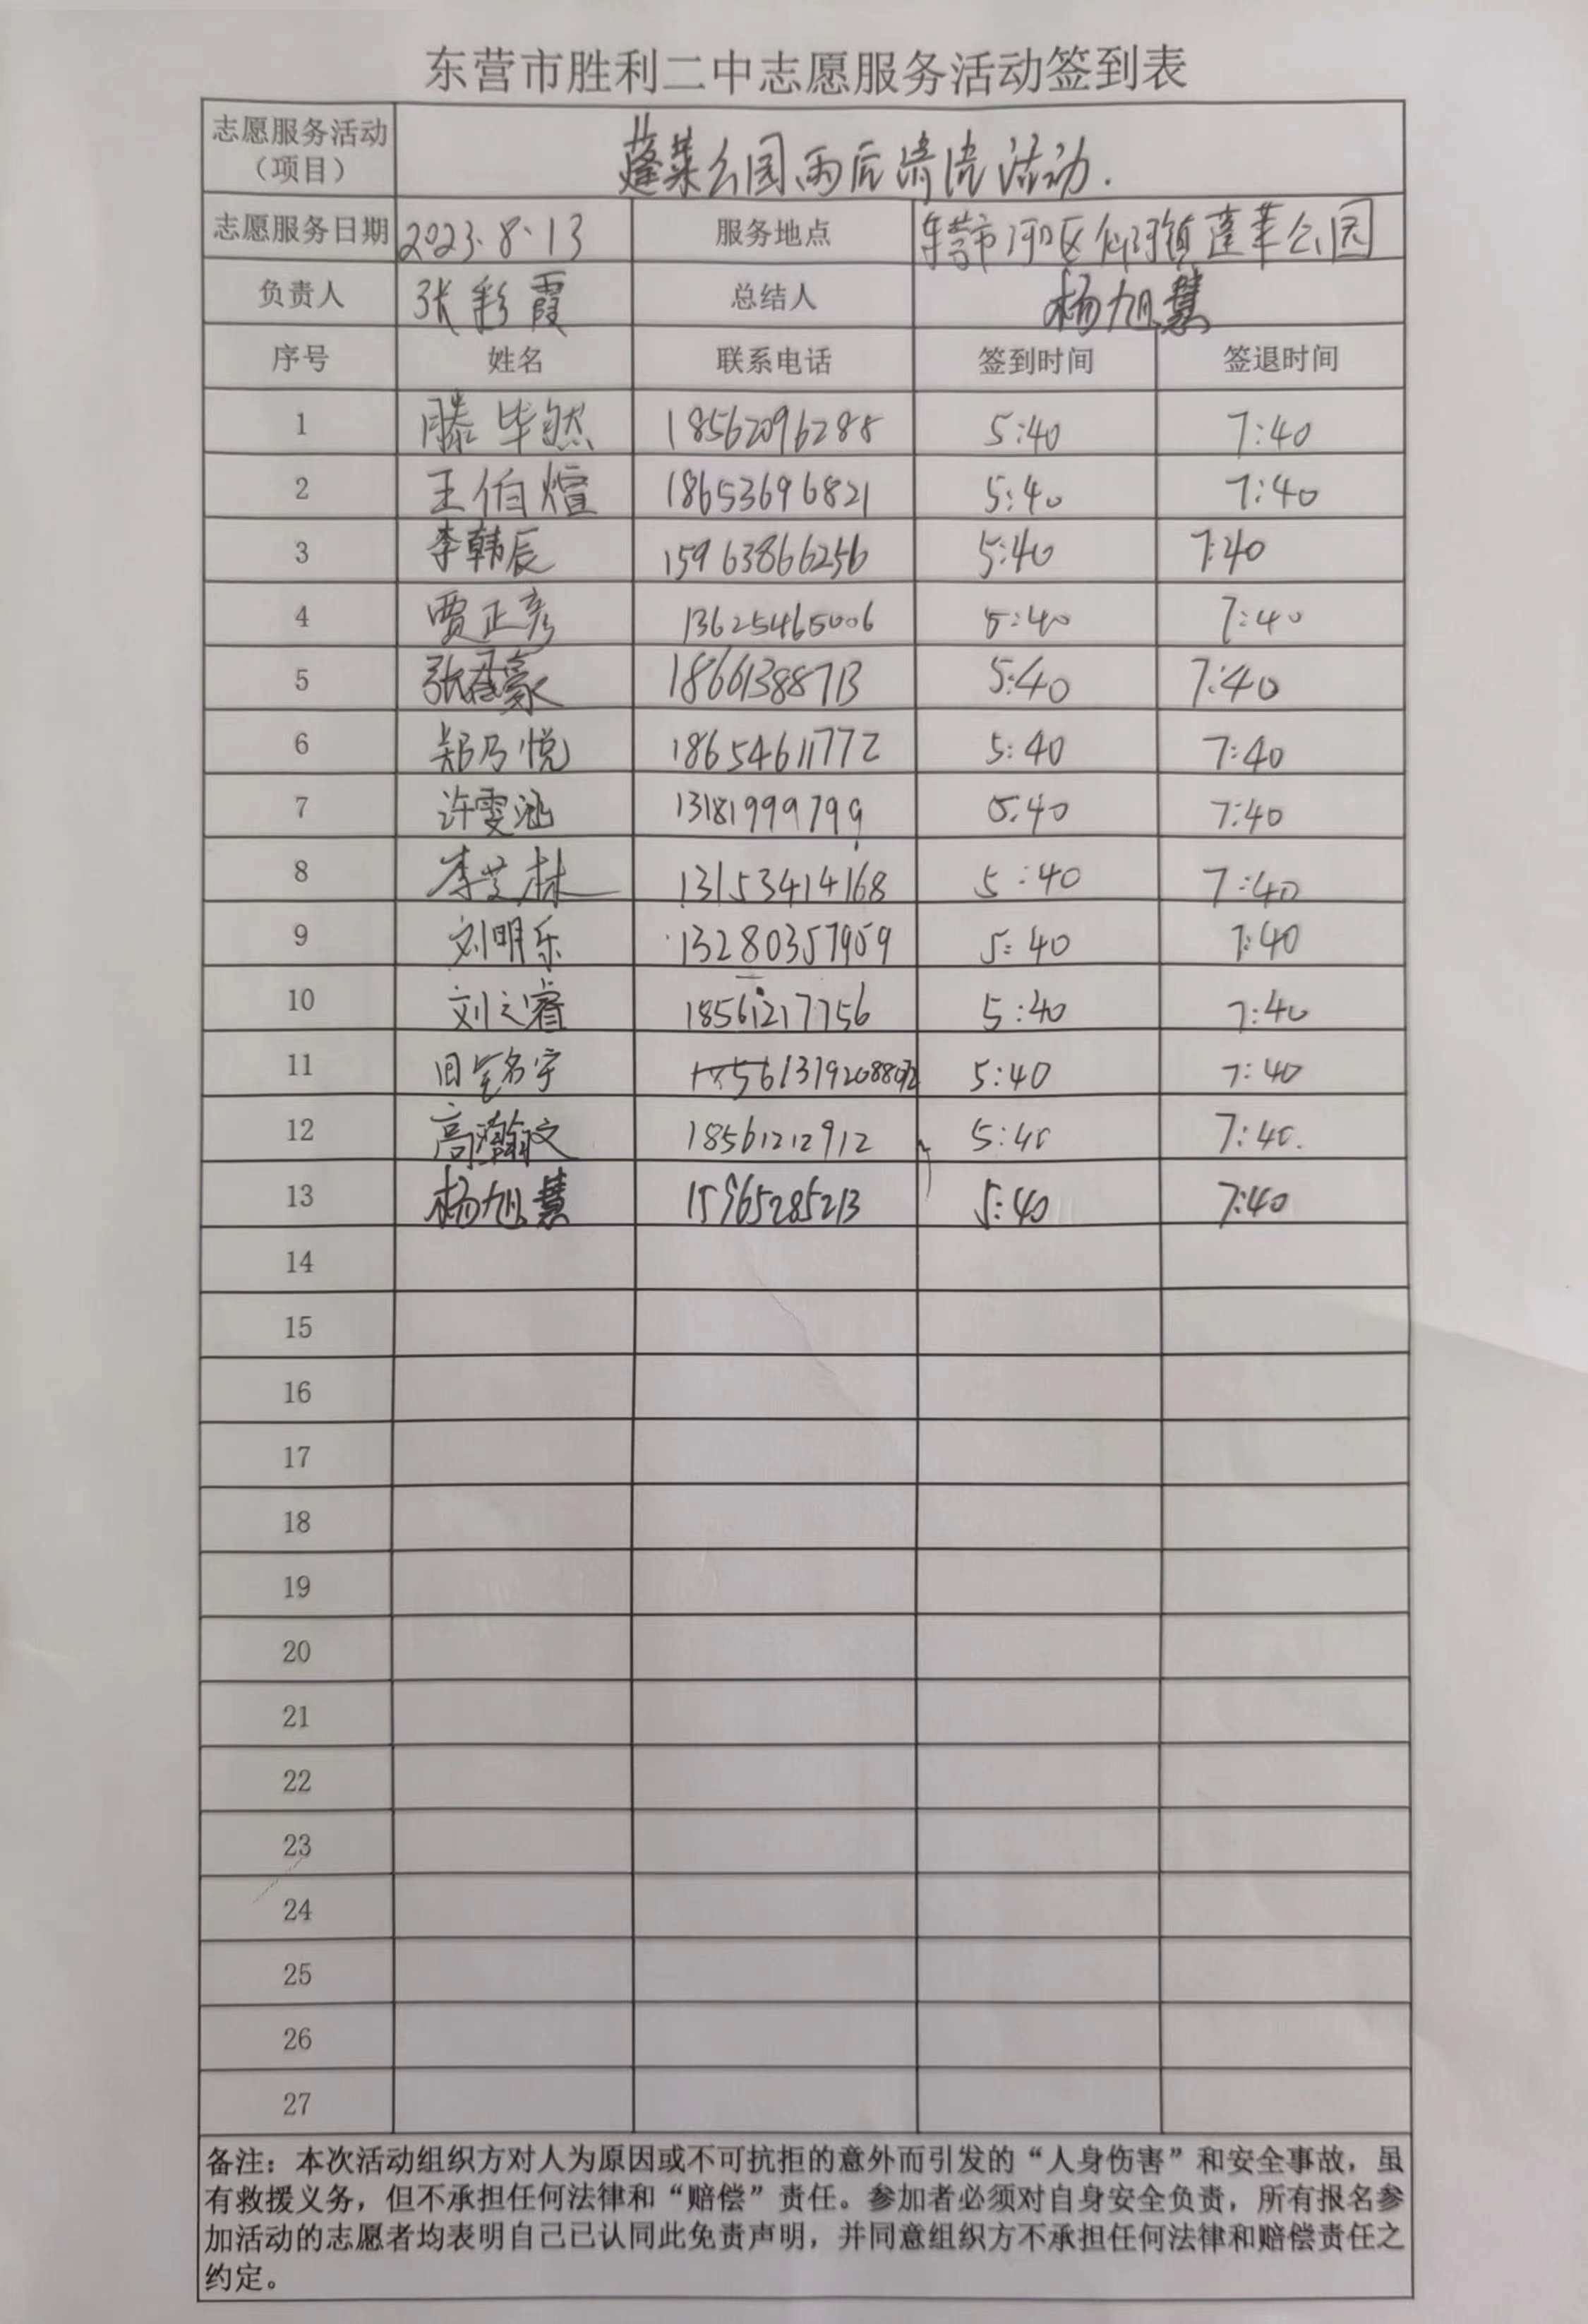 东营市胜利二中志愿服务活动签到表
志愿服务活动
（项目）
蓬莱公园雨后清洗活动.
志愿服务日期 2023.8.13 服务地点 东营市河口区仙河镇蓬莱公园
负责人 张彩霞 总结人 杨旭慧
序号 姓名 联系电话 签到时间 签退时间
1 滕毕然 18562096288 5:40 7:40
2 王伯煊 18653696821 5:40 7:40
3 李韩辰 15963866256 5:40 7:40
4 贾正彦 13625465006 5:40 7:40
5 18661388713 5:40 7:40
6 郑乃悦 18654611772 5:40 7:40
7 许雯涵 13181999799 5:40 7:40
8 李芝林 13153414168 5:40 7:40
9 刘明乐 13280357959 5:40 7:40
10 刘之睿 18561217756 5:40 7:40
11 5:40 7:40
12 高瀚文 18561212912 5:40 7:40.
13 杨旭慧 15965285213 5:40 7:40
14
15
16
17
18
19
20
21
22
23
24
25
26
27
备注：本次活动组织方对人为原因或不可抗拒的意外而引发的“人身伤害”和安全事故，虽
有救援义务，但不承担任何法律和“赔偿”责任。参加者必须对自身安全负责，所有报名参
加活动的志愿者均表明自己已认同此免责声明，并同意组织方不承担任何法律和赔偿责任之
约定。